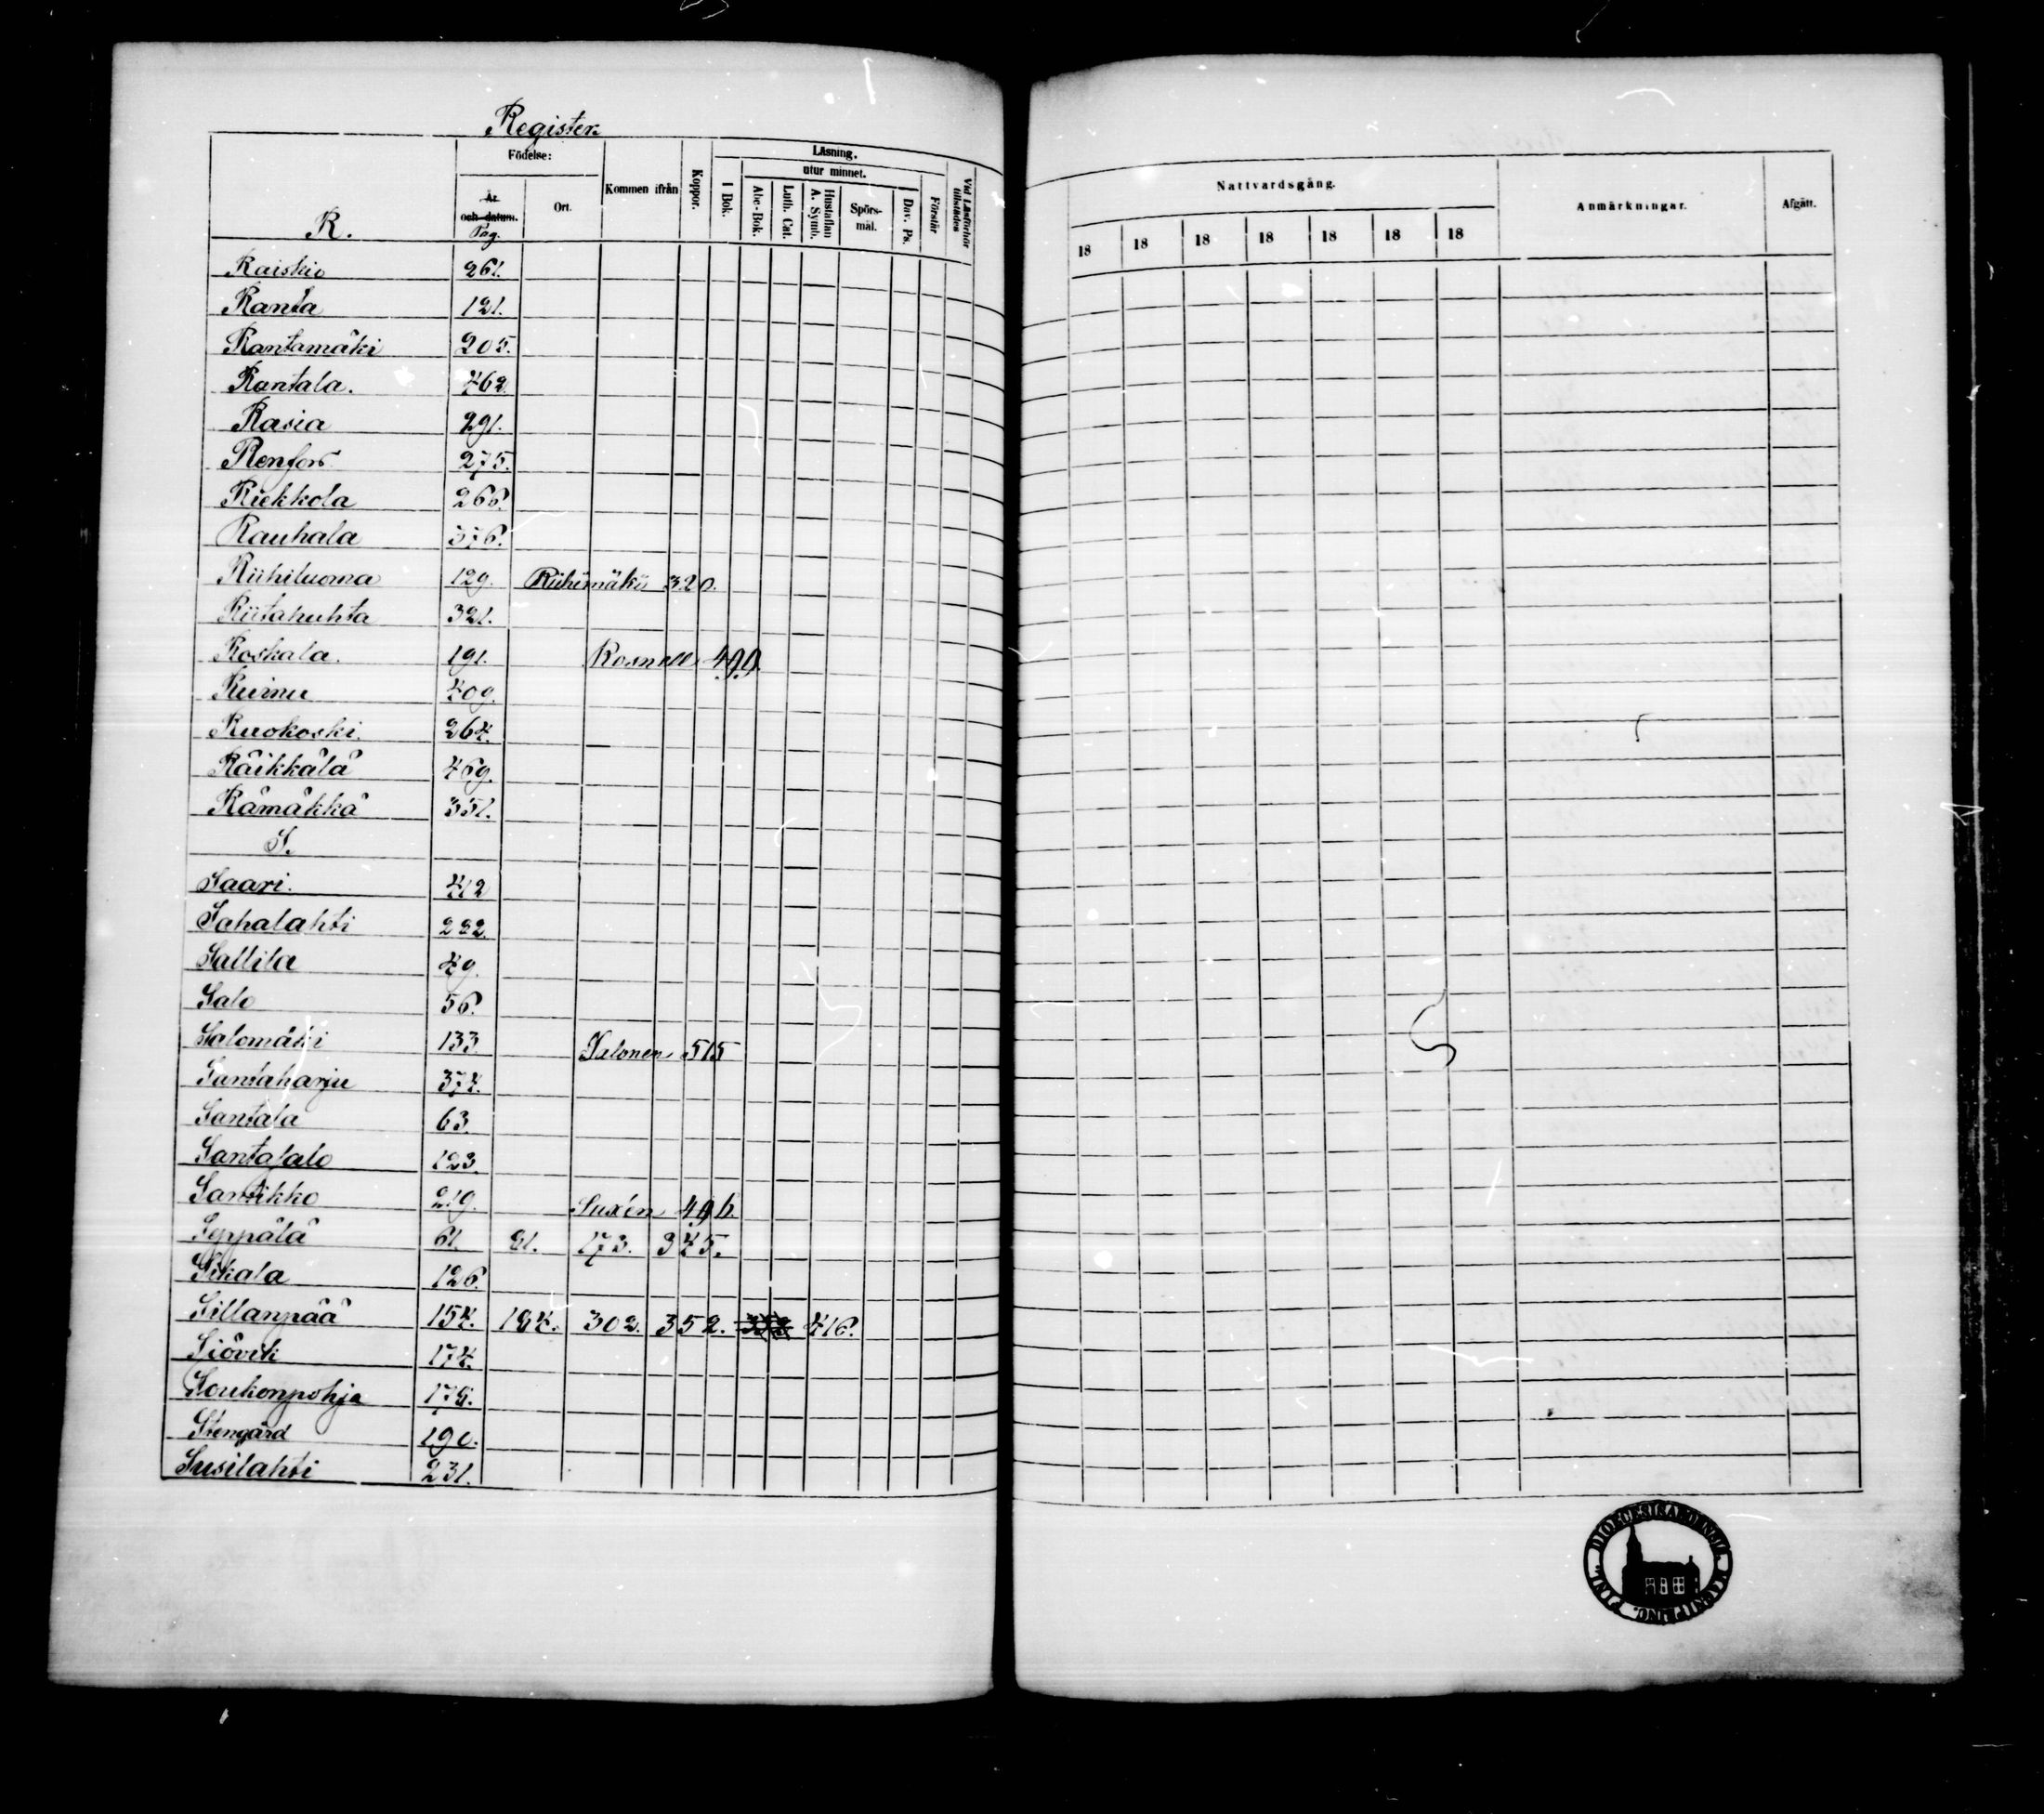 Register.
Födelse:
Kommen ifrån
Koppor.
Läsning.
utur minnet.
I Bok.
Abc-Bok.
Luth. Cat.
Hustaflan A. Symb.
Spörs-mål.
Dav. Ps.
Förstår
Vid Läsförhör tillstädes
År och datum.
Pag.
Ort.
R.
Raiskio 261.
Ranta 121.
Rantamäki 205.
Rantala. 462.
Rasia 291.
Renfors 275.
Riekkola 266.
Rauhala 376.
Riihiluoma 129. Riihimäki 320.
Riitahuhta 321.
Roskala. 191. Rosnell 499.
Ruimu 409.
Ruokoski. 264.
Räikkälä 469.
Rämäkkä 351.
S.
Saari. 412
Sahalahti 232.
Sallila 49.
Salo 56.
Salomäki 133. Salonen 515
Santaharju 374.
Santala 63.
Santasalo 123.
Santikko 219. Suxén 496.
Seppälä 61. 81. 173. 345.
Sikala 126.
Sillanpää 154. 184. 302. 352. 416.
Siövik 174.
Soukonpohja
Stengård 190.
Susilahti 231.
Nattvardsgång.
18 18 18 18 18 18 18
Anmärkningar.
Afgått.